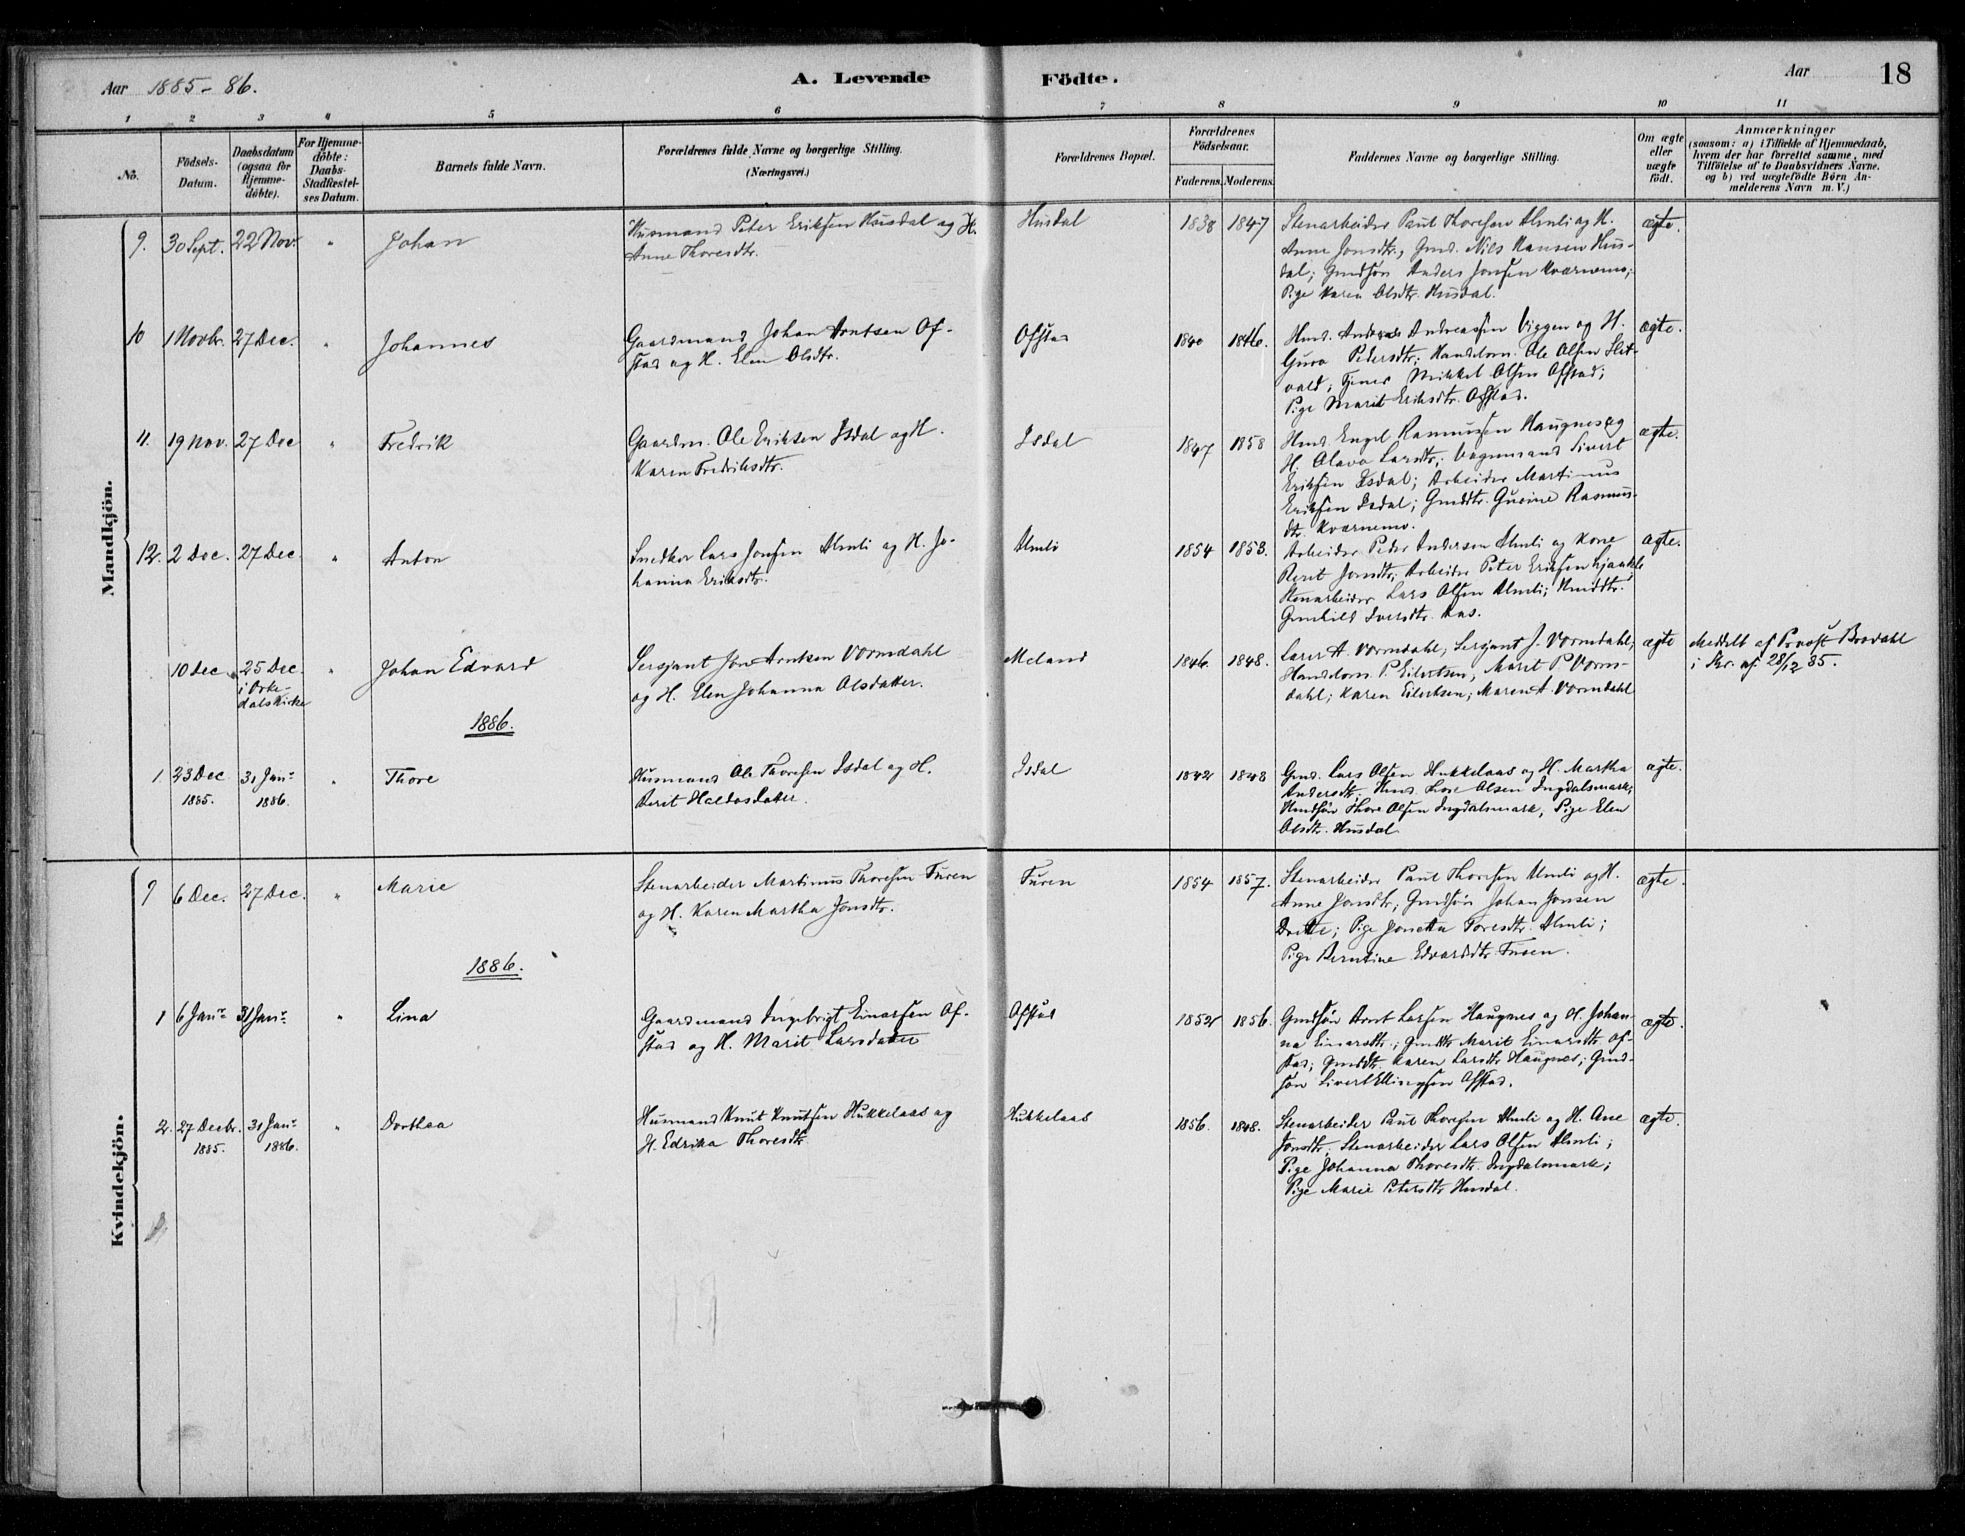 Aar 1885-86.
A. Levende Födte.
Aar
18
1 2 3 4 5 6 7 8 9 10 11
No.
Födsels-Datum.
Daabsdatum (ogsaa for Hjemme-döbte).
For Hjemme-döbte: Daabs-Stadfæstel-ses Datum.
Barnets fulde Navn.
Forældrenes fulde Navne og borgerlige Stilling. (Næringsvei.)
Forældrenes Bopæl.
Forældrenes Födselsaar.
Faderens. Moderens.
Faddernes Navne og borgerlige Stilling.
Om ægte eller uægte födt.
Anmærkninger
(saasom: a) i Tilfælde af Hjemmedaab,
hvem der har forrettet samme, med
Tilföielse af to Daabsvidners Navne.
og b) ved uægtefödte Börn An-
melderens Navn m. V.)
Mandkjön.
9. 30 Sept. 22 Nov. " Johan
Husmand Peter Eriksen Husdal og H.
Anne Thoresdtr.
Husdal 1838 1847
Stenarbeider Paul Thoresen Almli og H.
Anne Jonsdtr., Gmd. Nils Hansen Hus-
dal; Gmdsön Anders Jonsen Kværnemo;
Pige Karen Olsdtr. Husdal.
ægte.
10 1 Novbr. 27 Dec. " Johannes
Gaardmand Johan Arntsen Of-
stad og H. Elen Olsdtr.
Ofstad 1840 1846.
Hmd. Andreas Andreassen Viggen og H.
Guro Pedersdtr; Handelsm. Ole Olsen Slet-
vold; Tjener Mikkel Olsen Ofstad;
Pige Marit Eriksdtr. Ofstad.
ægte.
11. 19 Nov. 27 Dec " Fredrik
Gaardm. Ole Eriksen Isdal og H.
Karen Fredriksdtr.
Isdal 1847 1858
Hmd. Engel Rasmussen Haugnes og
H. Olava Larsdtr; Vognmand Sivert
Eriksen Isdal; Arbeider Martinus
Eriksen Isdal; Gmddtr. Gurine Rasmus-
dtr. Kværnemo.
ægte.
12. 2 Dec. 27 Dec " Anton
Snedker Lars Jonsen Almli og H. Jo-
hanna Eriksdtr.
Almli 1854 1853.
Arbeider Peder Andersen Almli og Kone
Berit Jonsdtr; Arbeider Peter Eriksen
Stenarbeider Lars Olsen Almli; Hmddtr.
Gunhild Iversdtr. Aas.
ægte.
10 Dec 25 Dec. i Orke-dalskirke " Johan Edvard
Sersjant Jon Arntsen Vormdahl
og H. Elen Johanna Olsdatter.
Meland 1846. 1848.
Lærer A. Vormdahl; Sersjant J. Vormdahl;
Handelsm. P. Eilertsen; Marit P. Vorm-
dahl; Karen Eilertsen; Maren A. Vormdahl
ægte
Meddelt af Provst Brodahl
i Skr. af 28/12 85.
1886.
1. 23 Dec 1885. 31 Janr 1886. " Thore
Husmand Ole Thoresen Isdal og H.
Berit Haldosdatter.
Isdal 1842 1848
Gmd. Lars Olsen Hukkelaas og H. Martha
Andersdtr; Hmd. Ole Olsen Ingdalsmark;
Hmdsön Thore Olsen Ingdalsmark, Pige Elen
Olsdtr. Husdal
ægte.
Kvindekjön.
9 6 Dec. 27 Dec. " Marie
Stenarbeider Martinus Thoresen Furen
og H. Karen Martha Jonsdtr.
Furen 1854 1857.
Stenarbeider Paul Thoresen Almli og H.
Anne Jonsdtr; Gmdsön Johan Jonsen
Pige Jonetta Toresdtr. Almli;
Pige Berntine Edvardsdtr Furen.
ægte.
1886.
1 6 Janr 31 Janr " Lina
Gaardmand Ingebrigt Einarsen Of-
stad og H. Marit Larsdatter
Ofstad 1852 1856.
Gmdsön Arnt Larsen Haugnes og H. Johan-
na Einarsdtr; Gmddtr Marit Einarsdtr Of-
stad; Gmddtr. Karen Larsdtr Haugnes; Gmd-
sön Sivert Ellingsen Ofstad.
ægte.
2. 27 Decbr. 1885. 31 Janr 1886. " Dorthea
Husmand Knut Knutsen Hukkelaas og
H. Edrika Thoresdtr.
Hukkelaas 1856. 1848.
Stenarbeider Paul Thoresen Almli og H. Ane
Jonsdtr; Stenarbeider Lars Olsen Almli;
Pige Johanna Thoresdtr. Ingdalsmark;
Pige Marie Petersdtr Husdal.
ægte.